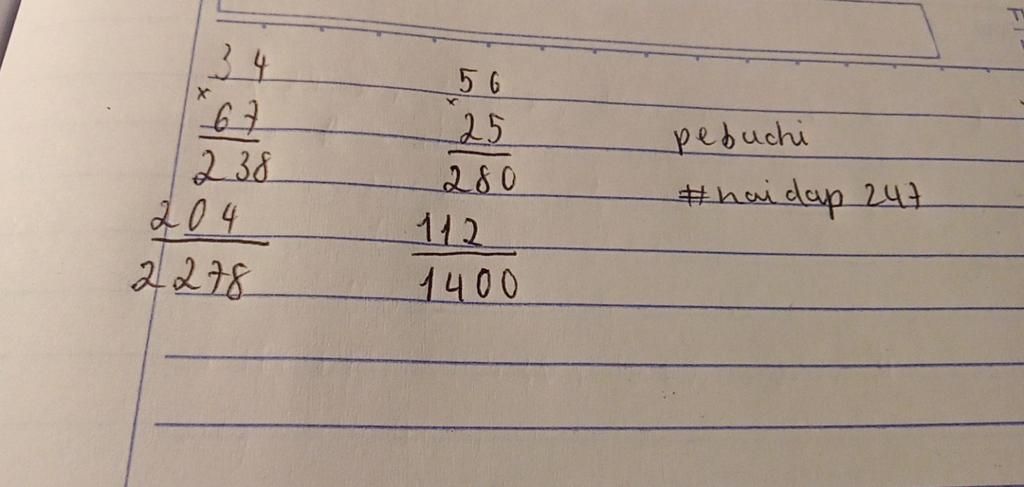 34
×
67
238
204
2278
56
×
25
280
112
1400
pebuchi
#hoidap 247